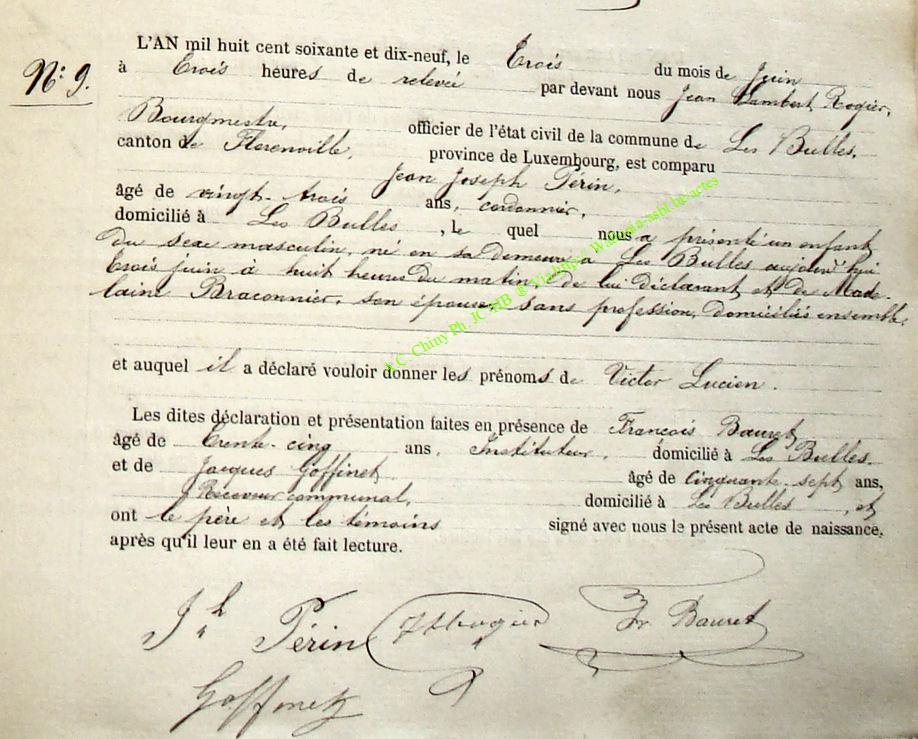 L'AN mil huit cent soixante et dix-neuf, le Trois du mois de Juin
N° 9. à Trois heures de relevée par devant nous Jean Lambert Rogier,
Bourgmestre, officier de l'état civil de la commune de Les Bulles,
canton de Florenville, province de Luxembourg, est comparu
Jean Joseph Périn,
âgé de vingt-trois ans, cordonnier,
domicilié à Les Bulles, le quel nous a présenté un enfant
du sexe masculin, né en sa demeure à Les Bulles aujourd'hui
trois juin à huit heures du matin, de lui déclarant et de Made-
laine Braconnier, son épouse, sans profession, domiciliés ensemble.
et auquel il a déclaré vouloir donner les prénoms de Victor Lucien.
Les dites déclaration et présentation faites en présence de François Bauret
âgé de trente-cinq ans, Instituteur, domicilié à Les Bulles.
et de Jacques Goffinet âgé de cinquante-sept ans,
Receveur communal, domicilié à Les Bulles, et
ont le père et les témoins signé avec nous le présent acte de naissance,
après qu'il leur en a été fait lecture.
Jh Périn JLRogier Fr Bauret
Goffinet
A.C. Chiny Ph. JC HB @